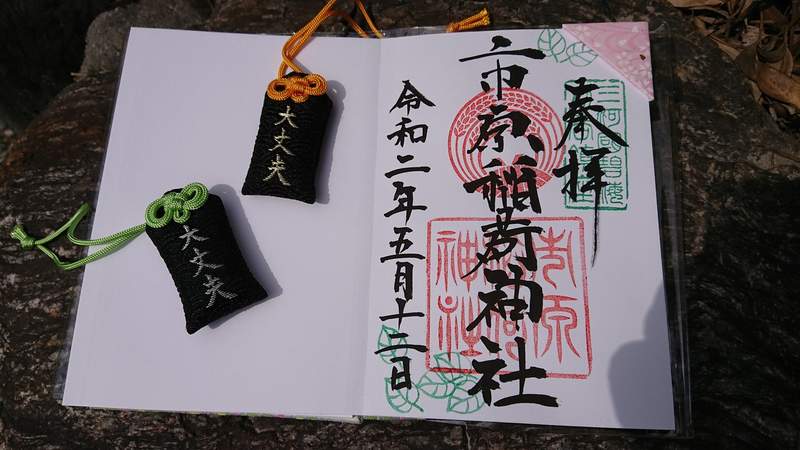 奉拝
市原稲荷神社
令和二年五月十二日
市原
稲荷
神社
大丈夫
大丈夫